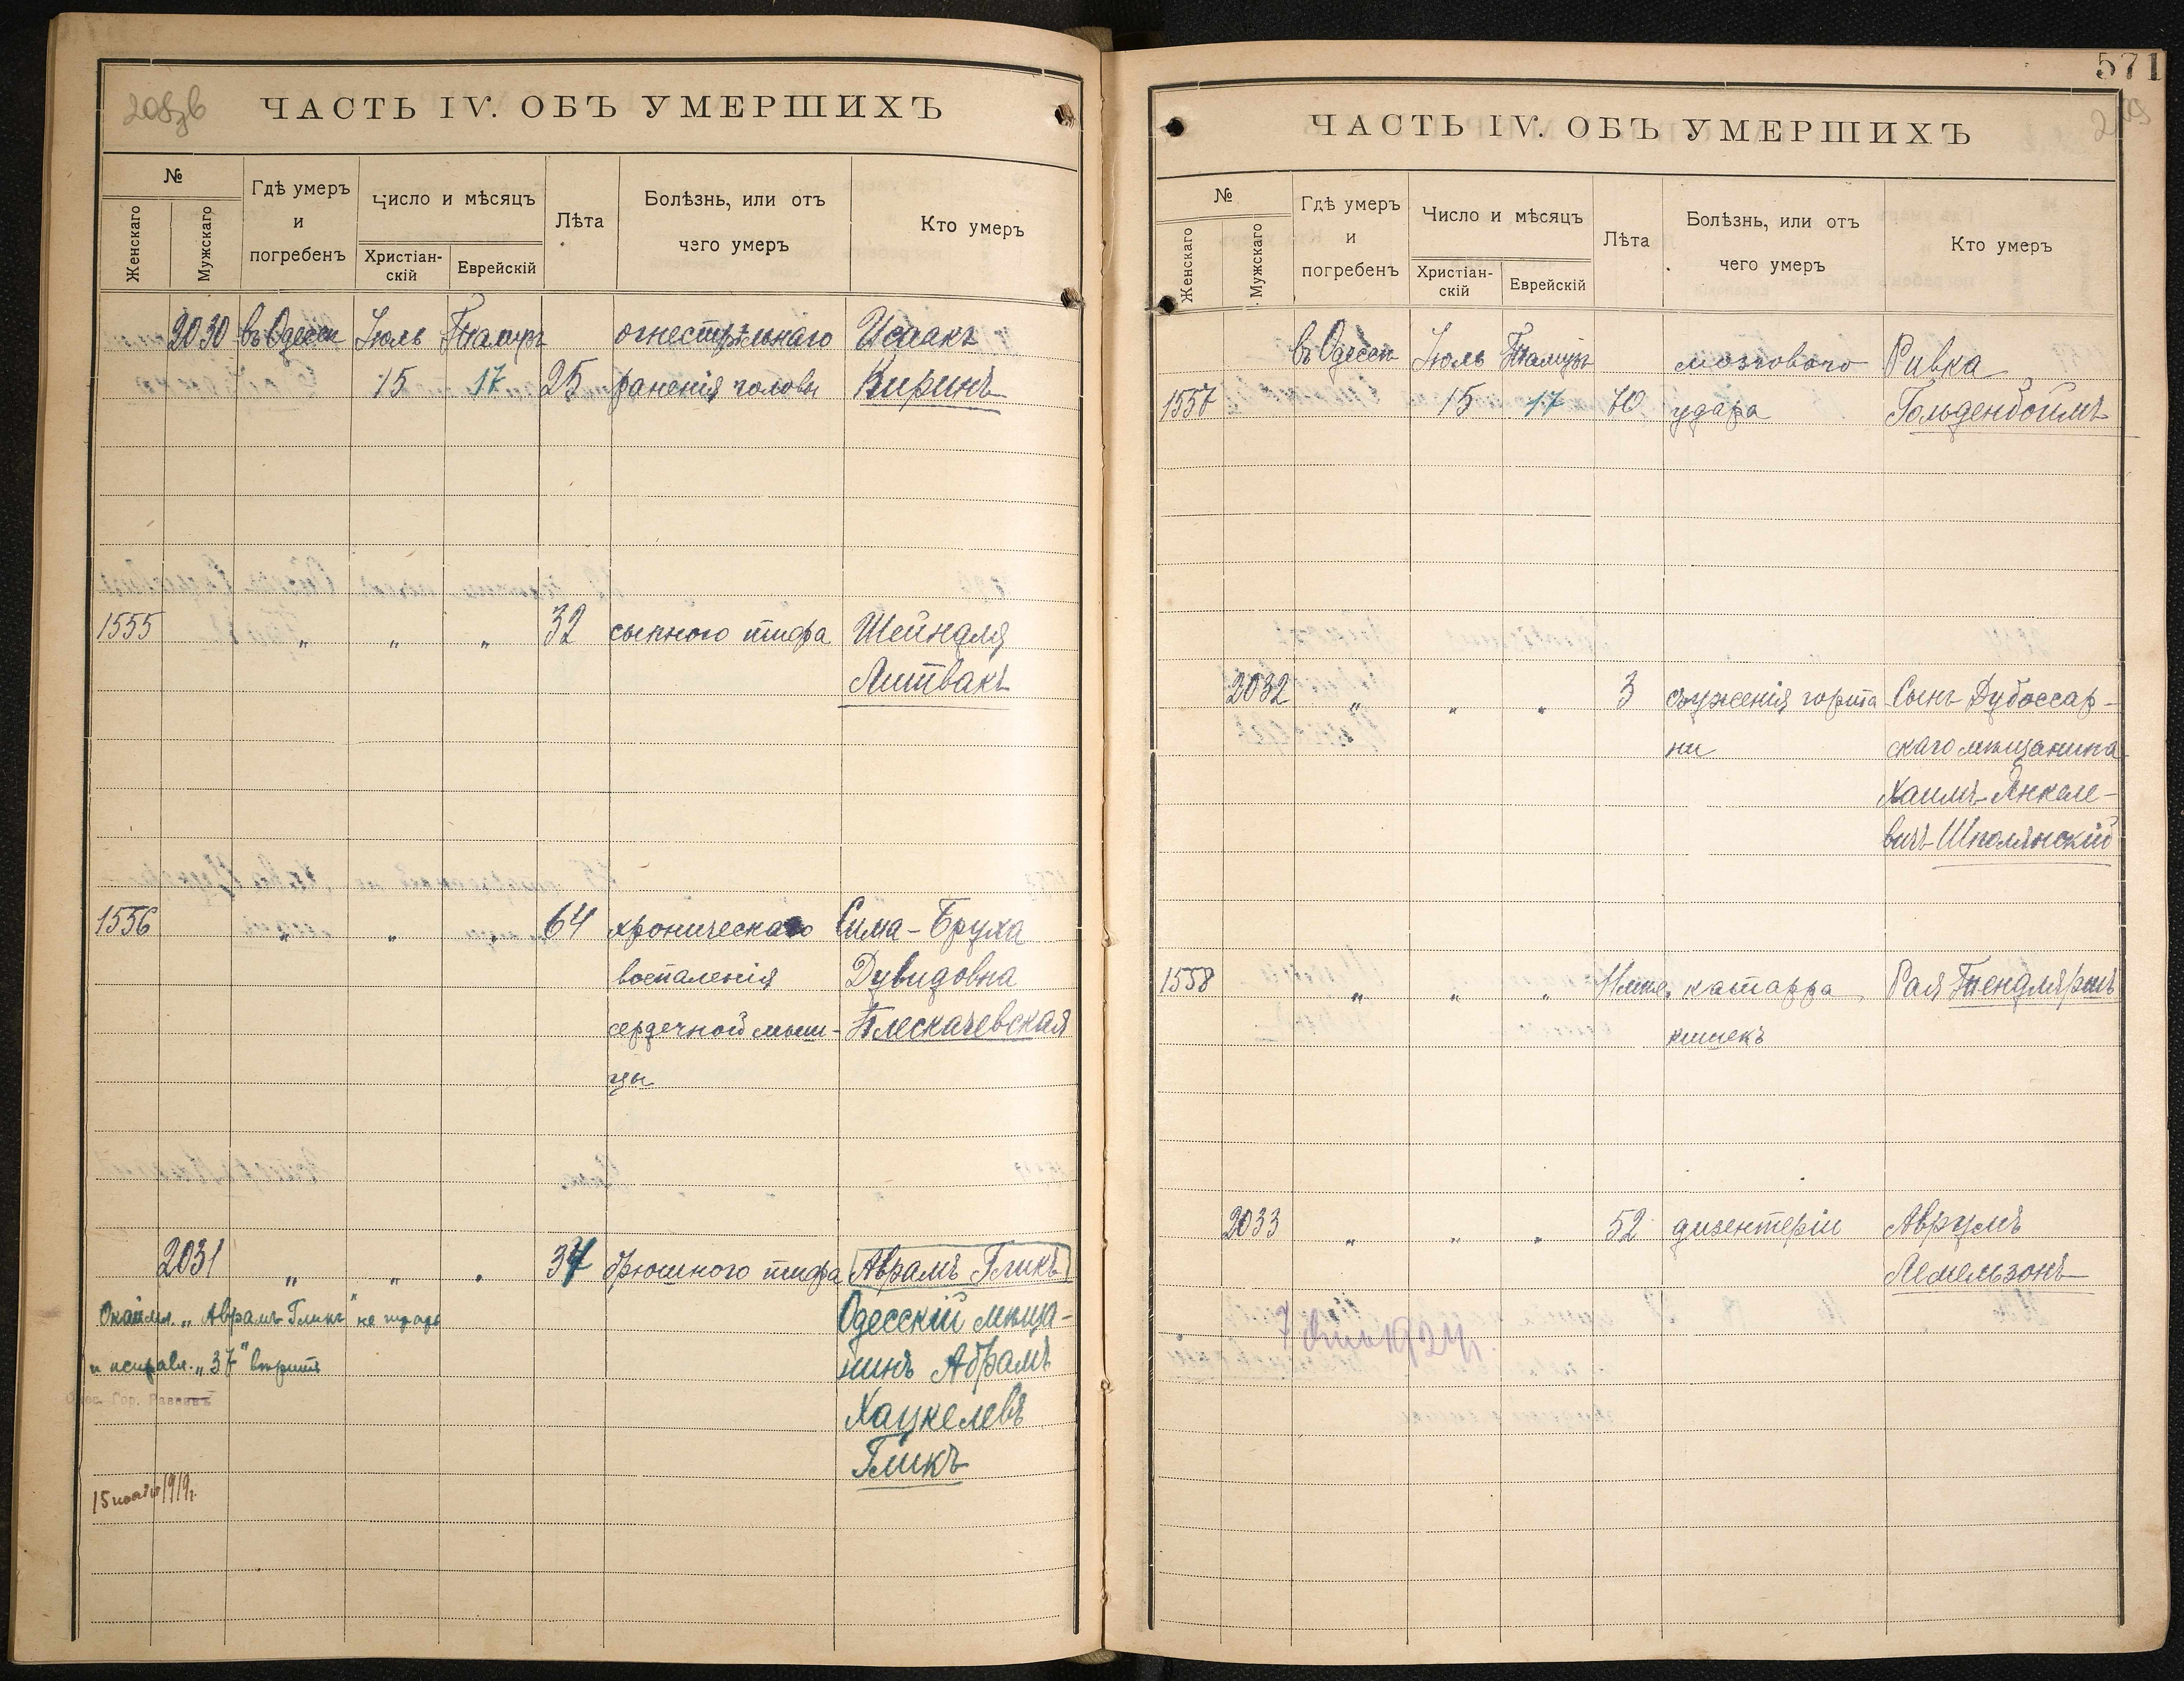 208зв
ЧАСТЬ IV. ОБЪ УМЕРШИХЪ
№
Женскаго
Мужскаго
Гдѣ умеръ
и
погребенъ
Число и мѣсяцъ
Христіан-
скій
Еврейскій
Лѣта
Болѣзнь, или отъ
чего умеръ
Кто умеръ
2030 въ Одессѣ Іюль Тамузъ огнестрѣльнаго Исаакъ
15 17 25 раненія головы Киринъ
1555 „ „ „ 32 сыпного тифа Шейндля
Литвакъ
1556 „ „ „ 64 хроническаго Сима-Бруха
воспаленія Дувидовна
сердечной мыш- Плескачевская
цы
2031 „ „ „ 37 брюшного тифа Аврамъ Гликъ
Одесскій мѣща-
нинъ Абрамъ
Хацкелевъ
Гликъ
„Аврамъ Гликъ" не
и исправл. „37" вѣрить
Одес. Гор. Раввинъ
15 1919г.
571
209
ЧАСТЬ IV. ОБЪ УМЕРШИХЪ
№
Женскаго
Мужскаго
Гдѣ умеръ
и
погребенъ
Число и мѣсяцъ
Христіан-
скій
Еврейскій
Лѣта
Болѣзнь, или отъ
чего умеръ
Кто умеръ
въ Одессѣ Іюль Тамузъ мозгового Ривка
1557 15 17 70 удара Гольденбоймъ
2032 „ „ „ 3 съуженія горта- Сынъ Дубоссар-
ни скаго мѣщанина
Хаимъ Янкеле-
вичъ Шполянскій
1558 „ „ „ катарра Рая
кишекъ
2033 „ „ „ 52 дизентеріи Аврумъ
Лемельзонъ
7 1924г.